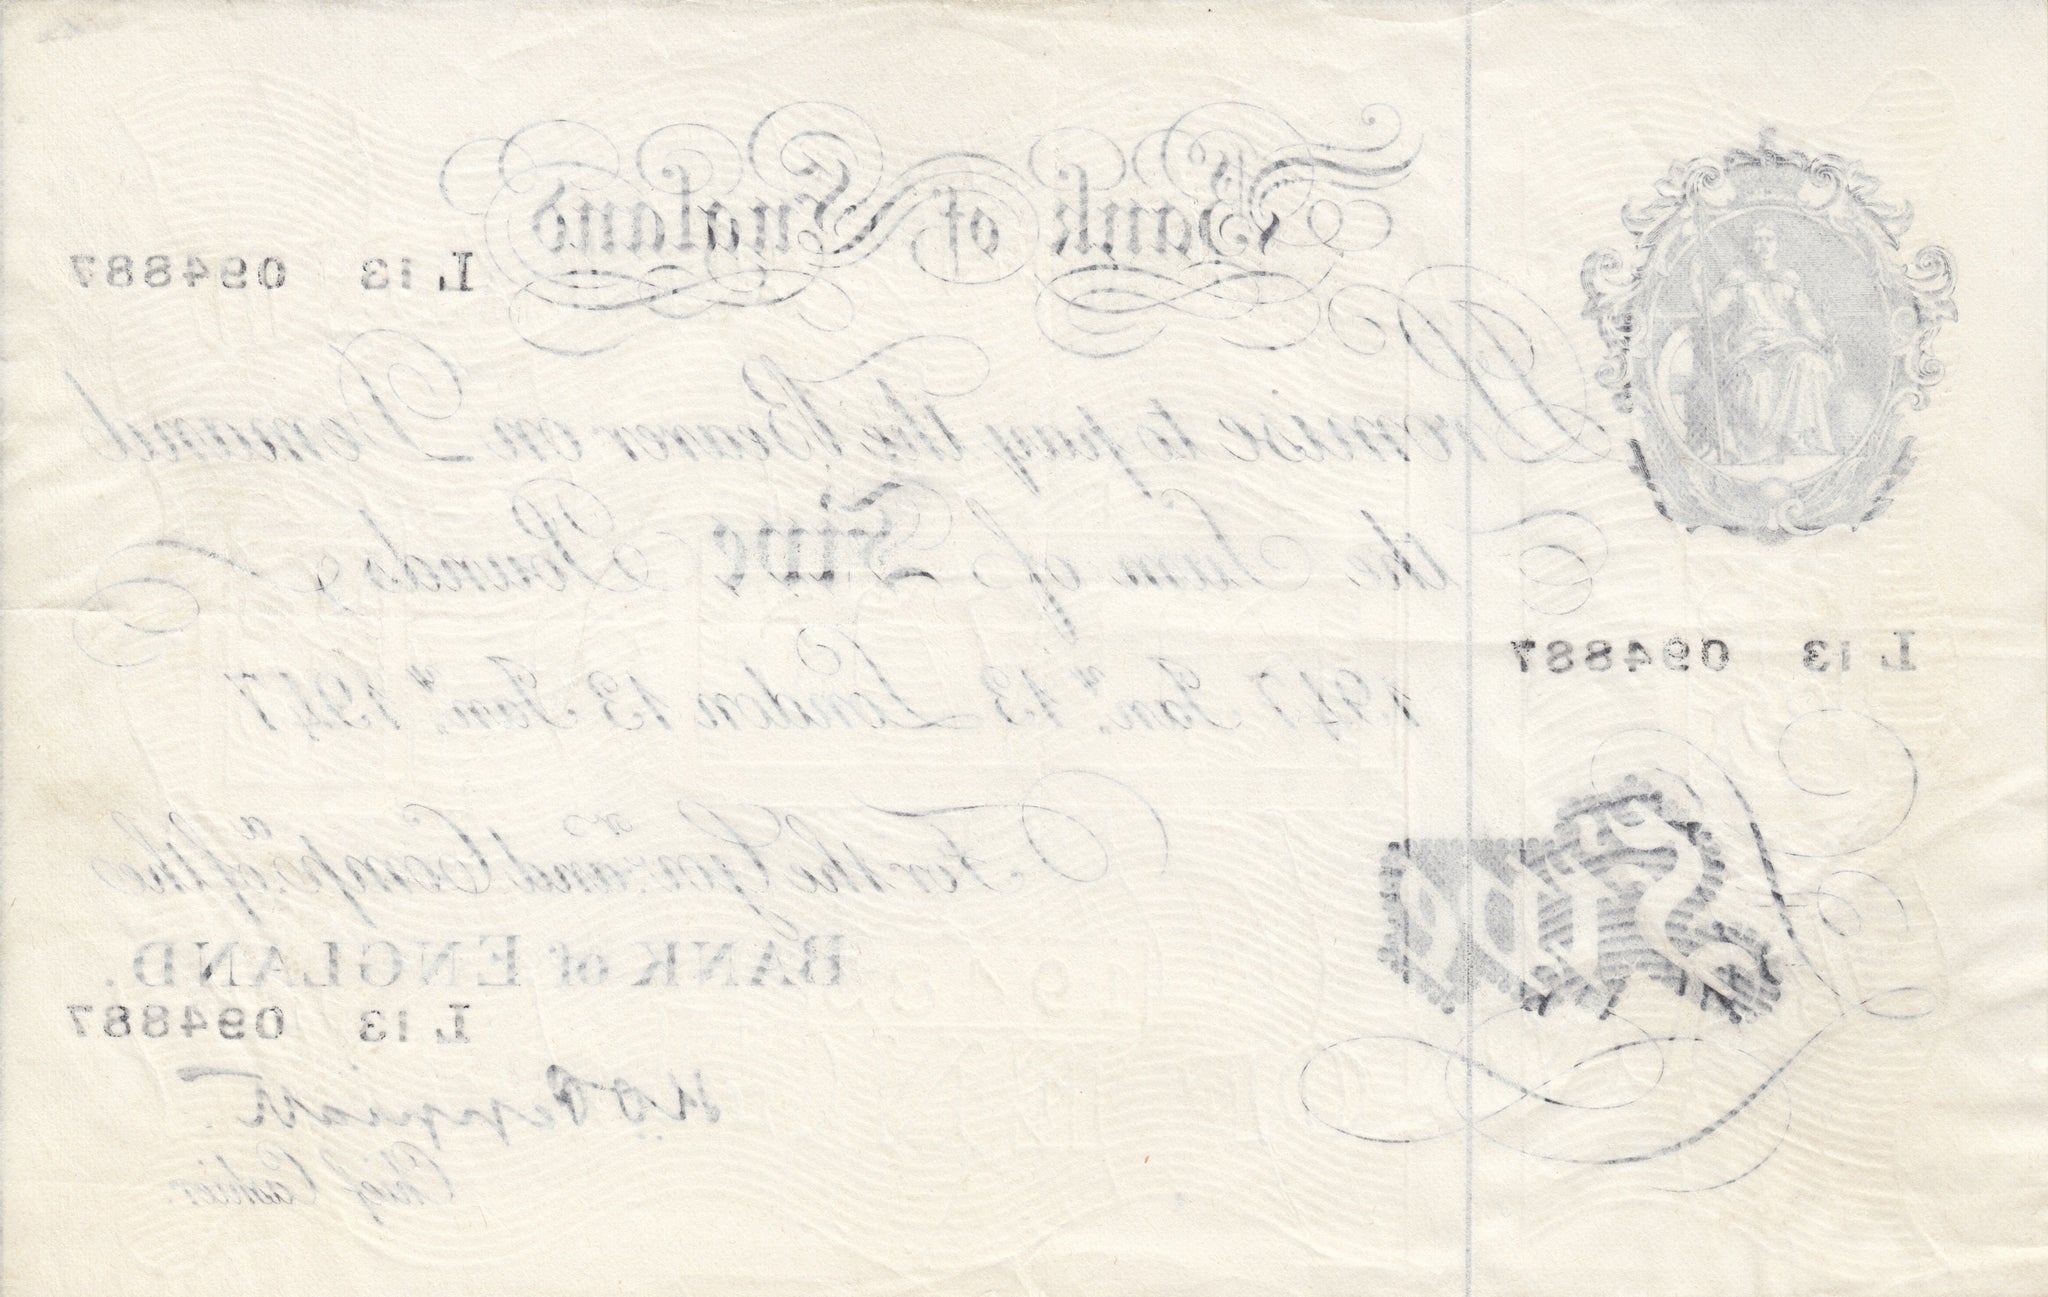 Bank of England
L 13 094887
Promise to pay the Bearer on Demand
the Sum of Five Pounds
L 13 094887
1947 Jany. 13 London 13 Jany. 1947
£ Five
For the Govr. and Compa. of the
BANK of ENGLAND.
L 13 094887
Chief Cashier.